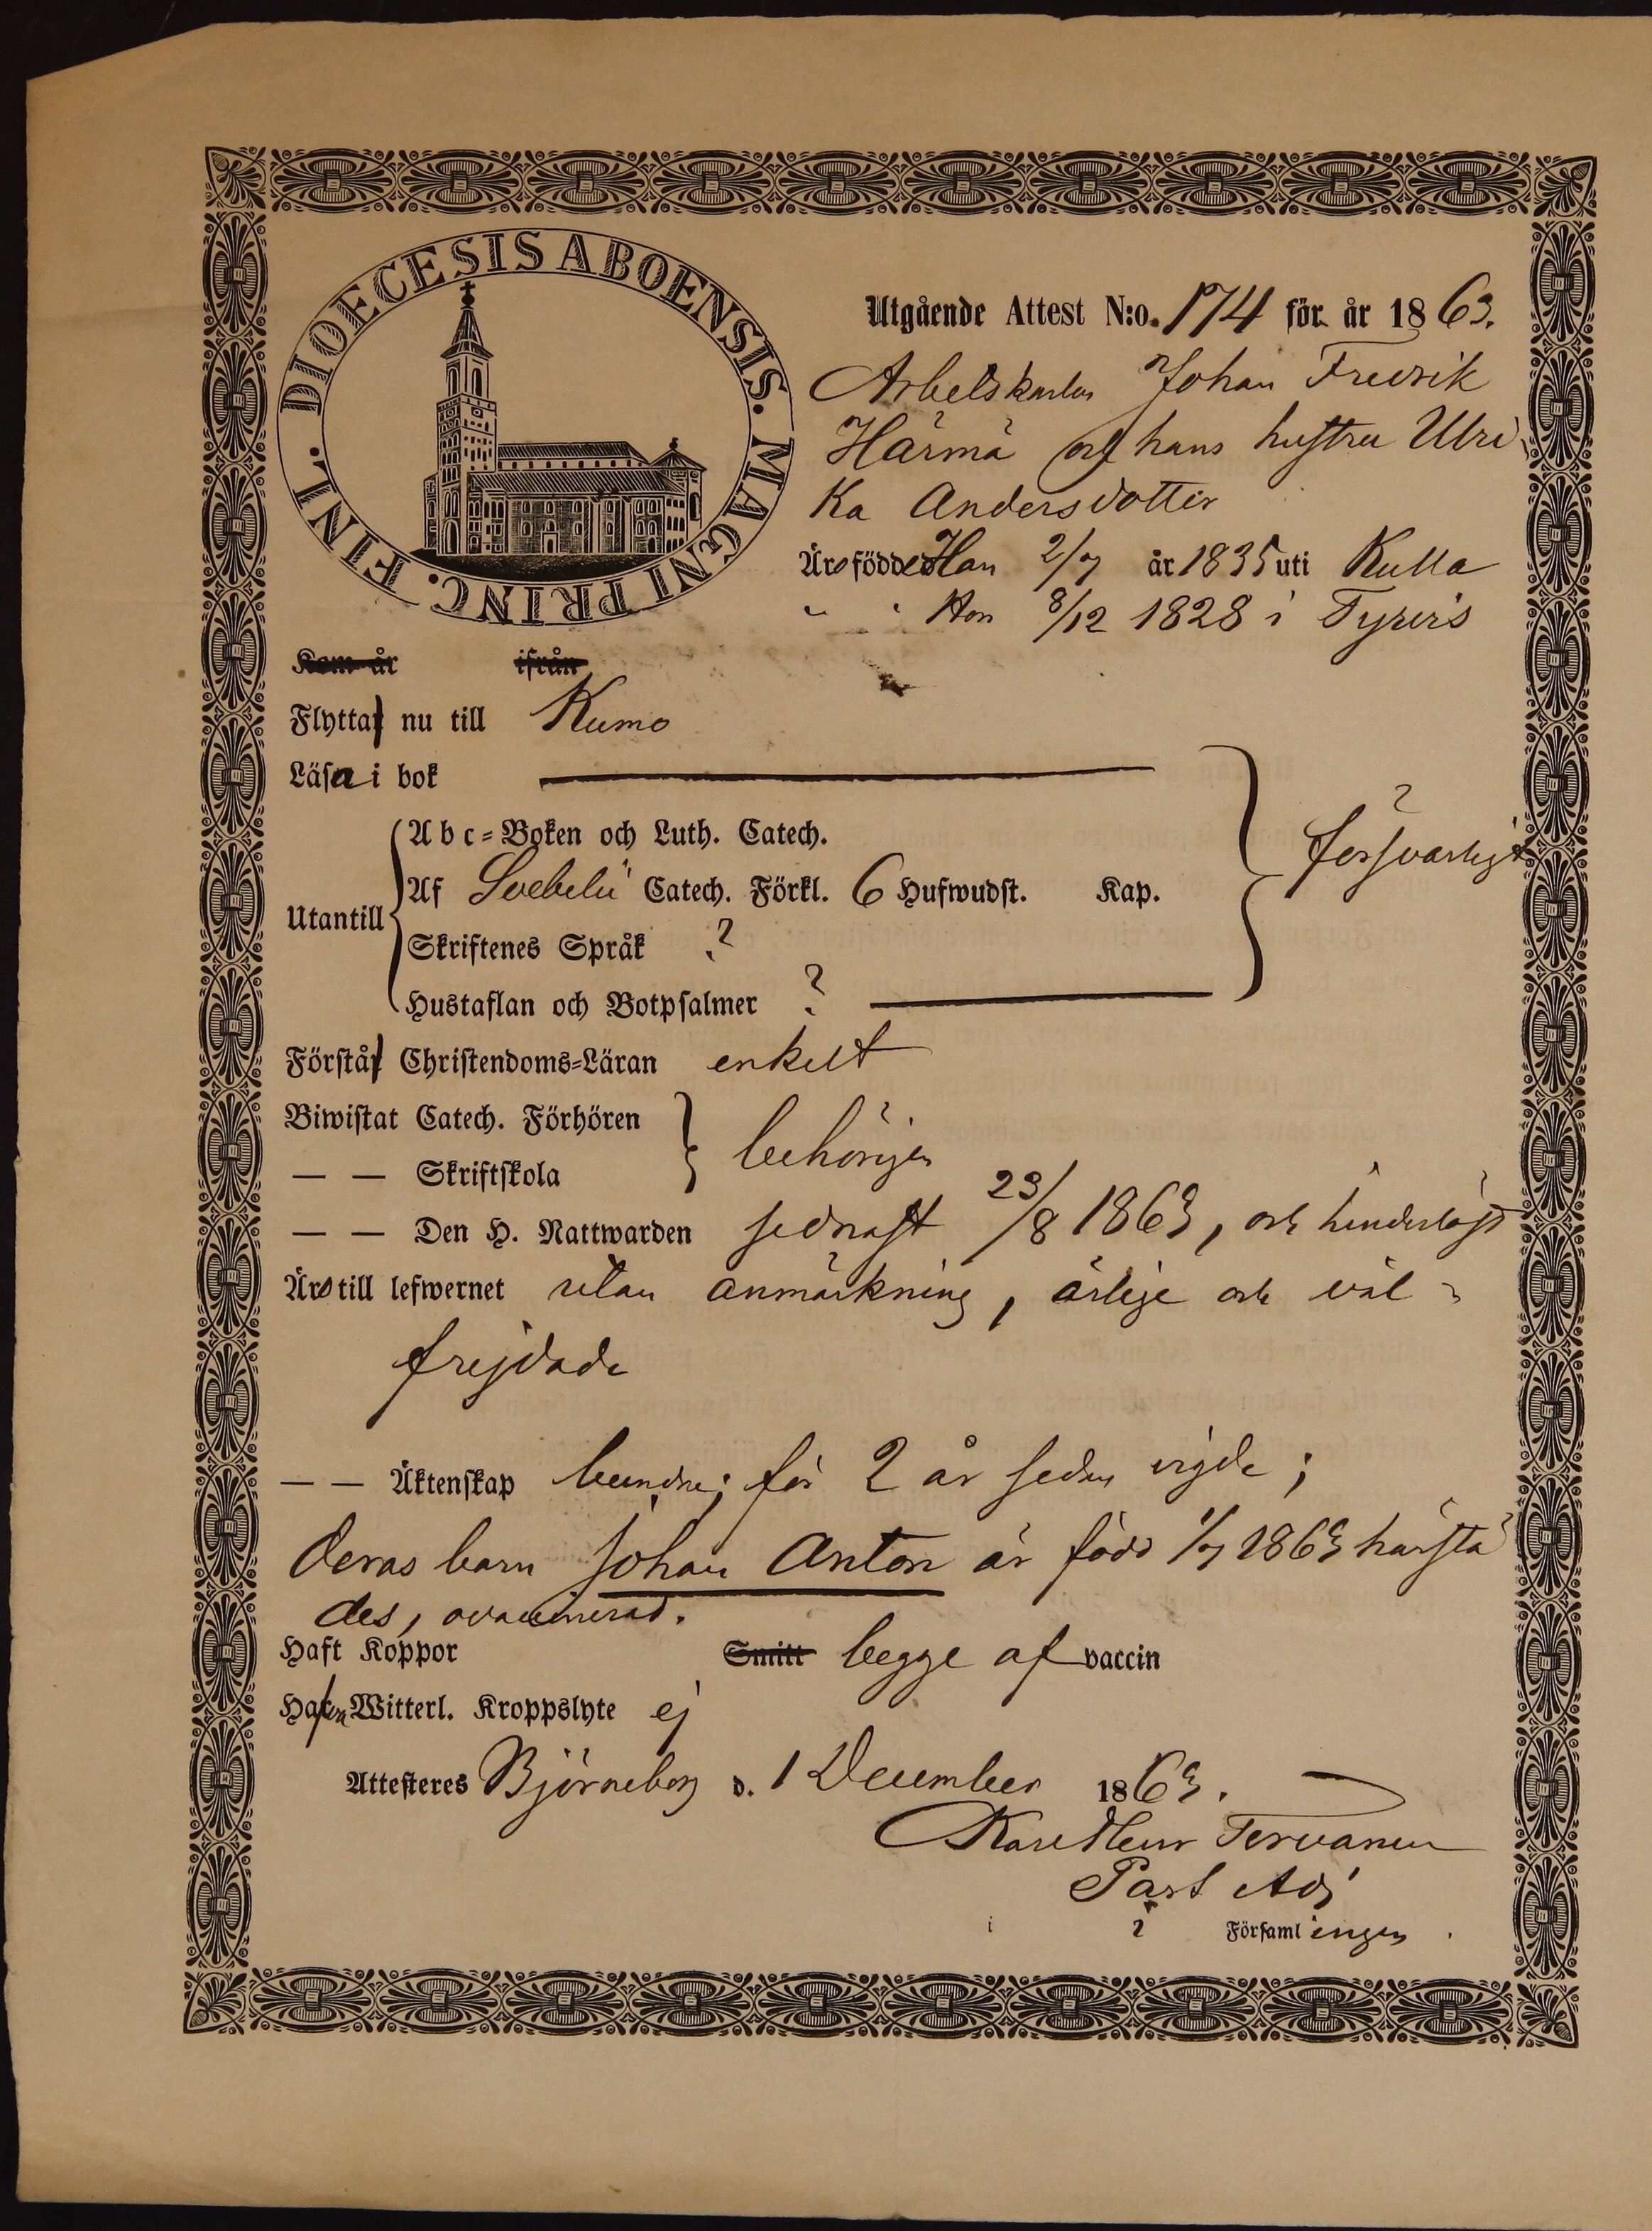 DIOECESIS ABOENSIS. MAGNI PRINC. FINL.
Utgående Attest N:o. 174 för år 1863.
Arbetskarlen Johan Fredrik
Härmä och hans hustru Ulri
ka Andersdotter
Äro födde Han 2/7 år 1835 uti Kulla
" " Hon 8/12 1828 i Tyrvis
Kom år ifrån
Flytta nu till Kumo
Läsa i bok
Abc-Boken och Luth. Catech.
försvarligt
Af Svebelii Catech. Förkl. 6 Hufwudst. Kap.
Utantill
Skriftenes Språk ?
Hustaflan och Botpsalmer ?
Förstå Christendoms-Läran enkelt
Biwistat Catech. Förhören
behörigen
— — Skriftskola
— — Den H. Nattwarden sednast 23/8 1863, och hinderlöst
Äro till lefwernet utan anmärkning, ärlige och väl-
frejdade
— — Äktenskap bundne; för 2 år sedan vigde;
deras barn Johan Anton är född 1/7 1863 härstä
des, ovaccinerad.
Haft Koppor Smitt begge af vaccin
Hafva Witterl. Kroppslyte ej
Attesteres Björneborg d. 1 December 1863.
Karl Henr Tervanen
Past Adj
i Församlingen